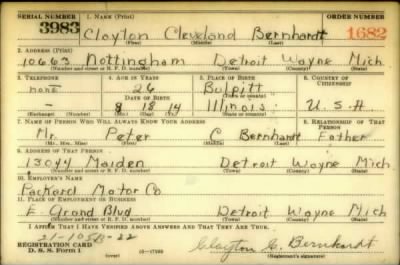 SERIAL NUMBER 1. NAME (Print) ORDER NUMBER
3983 Clayton Cleveland Bernhardt 1682
(First) (Middle) (Last)
2. ADDRESS (Print)
10663 Nottingham Detroit Wayne Mich
(Number and street or R. F. D. number) (Town) (County) (State)
3. TELEPHONE 4. AGE IN YEARS 5. PLACE OF BIRTH 6. COUNTRY OF CITIZENSHIP
none 26 Bulpitt
DATE OF BIRTH (Town or county)
8 18 14 Illinois U.S.A
(Exchange) (Number) (Mo.) (Day) (Yr.) (State or country)
7. NAME OF PERSON WHO WILL ALWAYS KNOW YOUR ADDRESS 8. RELATIONSHIP OF THAT PERSON
Mr. Peter C Bernhardt Father
(Mr., Mrs., Miss) (First) (Middle) (Last)
9. ADDRESS OF THAT PERSON
13044 Maiden Detroit Wayne Mich
(Number and street or R. F. D. number) (Town) (County) (State)
10. EMPLOYER'S NAME
Packard Motor Co
11. PLACE OF EMPLOYMENT OR BUSINESS
E. Grand Blvd Detroit Wayne Mich
(Number and street or R. F. D. number) (Town) (County) (State)
I AFFIRM THAT I HAVE VERIFIED ABOVE ANSWERS AND THAT THEY ARE TRUE.
REGISTRATION CARD
D. S. S. Form 1 16—17105 Clayton C. Bernhardt
(Registrant's signature)